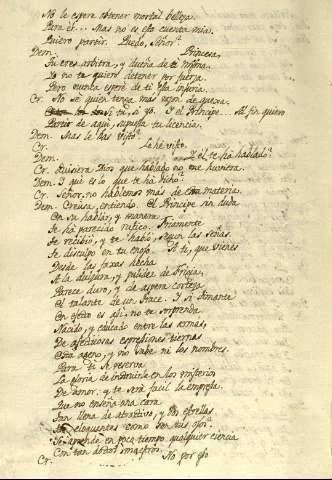 No le espera obtener mortal belleza.
Para él... Mas no es esta cuenta mia.
Quiero partir. Puedo, Señor?
Dem. Princesa,
Tu eres arbitra, y dueña de ti misma.
Yo no te quiero detener por fuerza.
Pero nunca esperé de ti esta injuria.
Cr. No sé quien tenga mas razon de quexa,
si tú, si yo, ó el Principe. Al fin quiero
Partir de aqui, supuesta tu licencia.
Dem. Mas le has visto?
Cr. Le hé visto.
Dem. Y él te ha hablado?
Cr. Quisiera Dios que hablado no me huviera.
Dem. I qué es lo que te há dicho?
Cr. Señor, no hablemos mas de esta materia.
Dem. Creusa, entiendo. El Principe sin duda
En su hablar, y manera
Te há parecido rustico. Friamente
Te recibió, y te habló, segun las señas
Te disculpo en tu enojo. A ti, que vienes
Desde las tazas hecha
A la dulzura, y pulidez de Frigia,
Parece duro, y de aspera corteza
El talante de un Trace. I si Timante
En efecto es asi, no te sorprenda
Nacido, y educado entre las armas,
De afectuosas expresiones tiernas
Está ageno, y no sabe ni los nombres.
Para ti se reserva
La gloria de instruirle en los misterios
De honor, y te será facil la empresa.
Que no enseña una cara
Tan llena de atractivo, y dos estrellas
Tan eloquentes como son tus ojos?
Se aprende en poco tiempo qualquier ciencia
Con tan doctos maestros.
Cr. No por eso